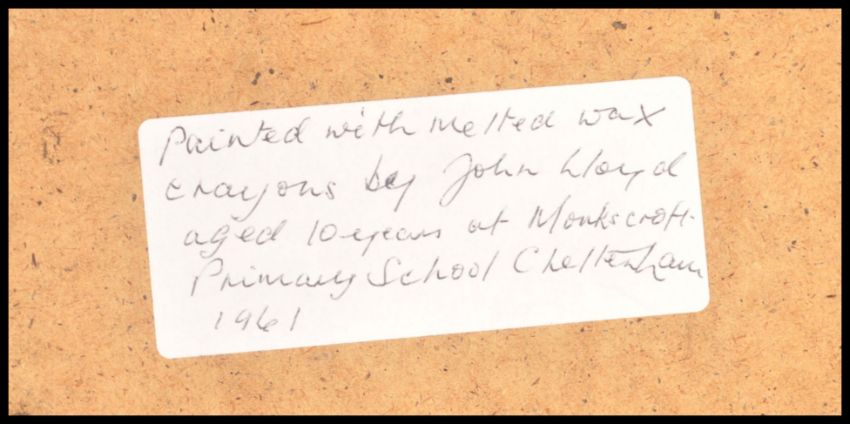 Painted with melted wax
crayons by John Lloyd
aged 10 years at Monkscroft
Primary School Cheltenham
1961